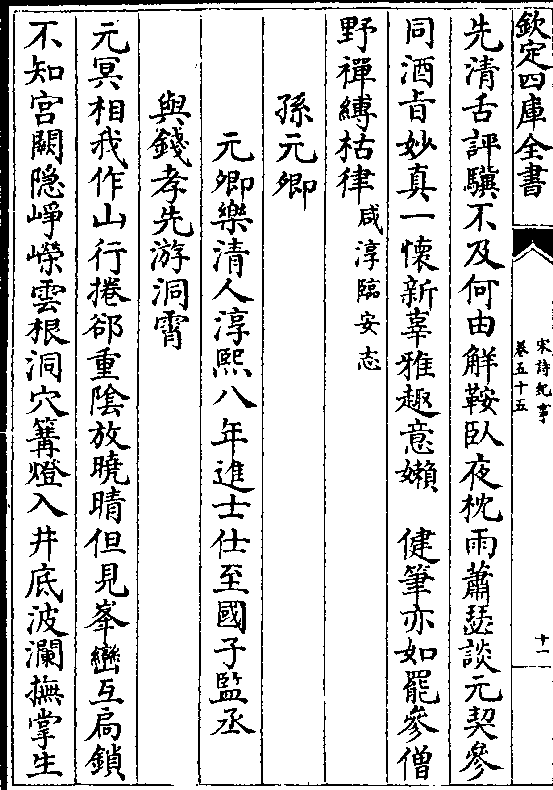 欽定四庫全書
宋詩紀事
卷五十五
十一
先清舌評驥不及何由解鞍臥夜枕雨蕭瑟談元契參
同酒旨妙真一懷新辜雅趣意嬾　健筆亦如罷參僧
野禪縛枯律咸淳臨安志
孫元卿
元卿樂清人淳熙八年進士仕至國子監丞
與錢孝先游洞霄
元冥相我作山行捲郤重陰放曉晴但見峯巒互扃鎖
不知宮闕隠崢嶸雲根洞穴篝燈入井底波瀾撫掌生